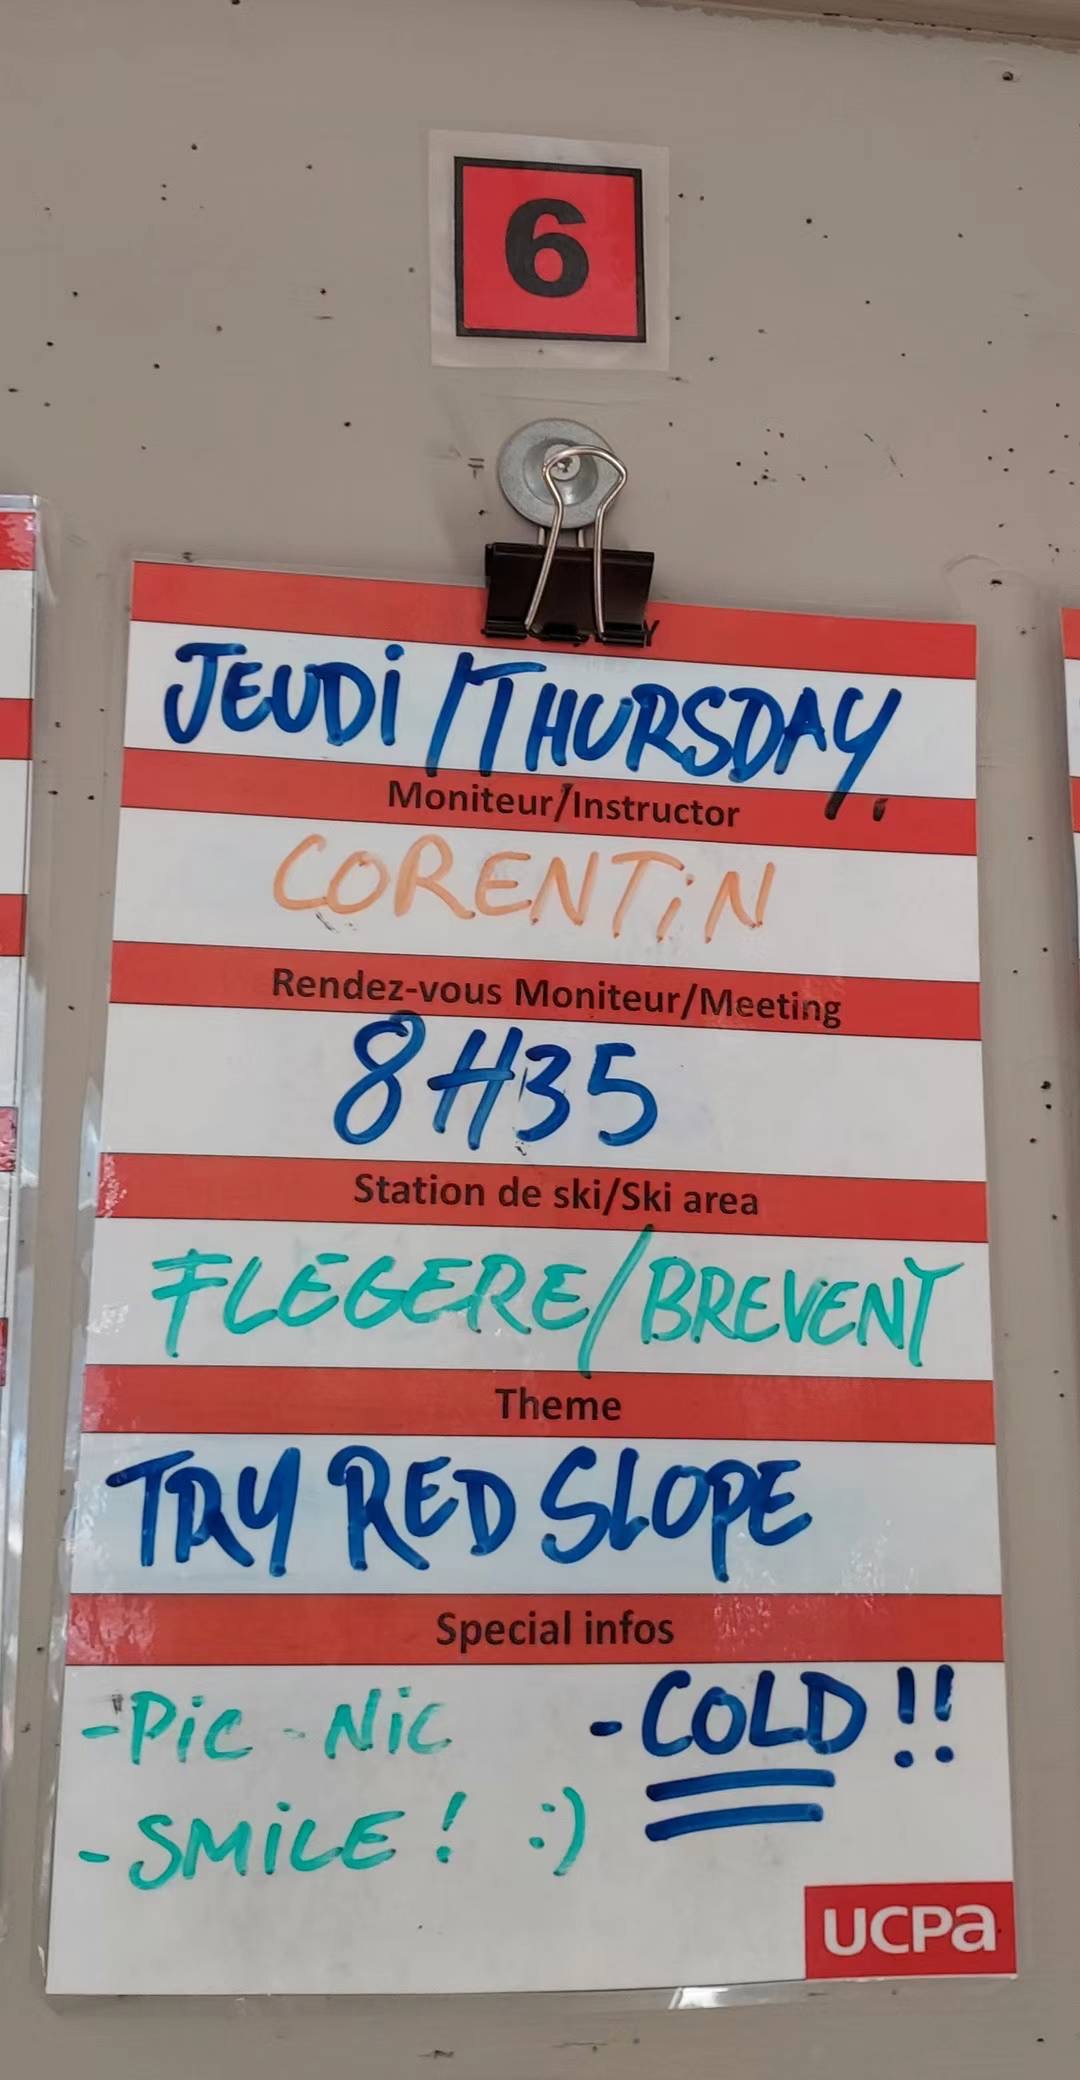 6
JEUDI / THURSDAY
Moniteur/Instructor
CORENTIN
Rendez-vous Moniteur/Meeting
8H35
Station de ski/Ski area
FLEGERE/BREVENT
Theme
TRY RED SLOPE
Special infos
- Pic - Nic - COLD !!
- SMILE ! :)
UCPA